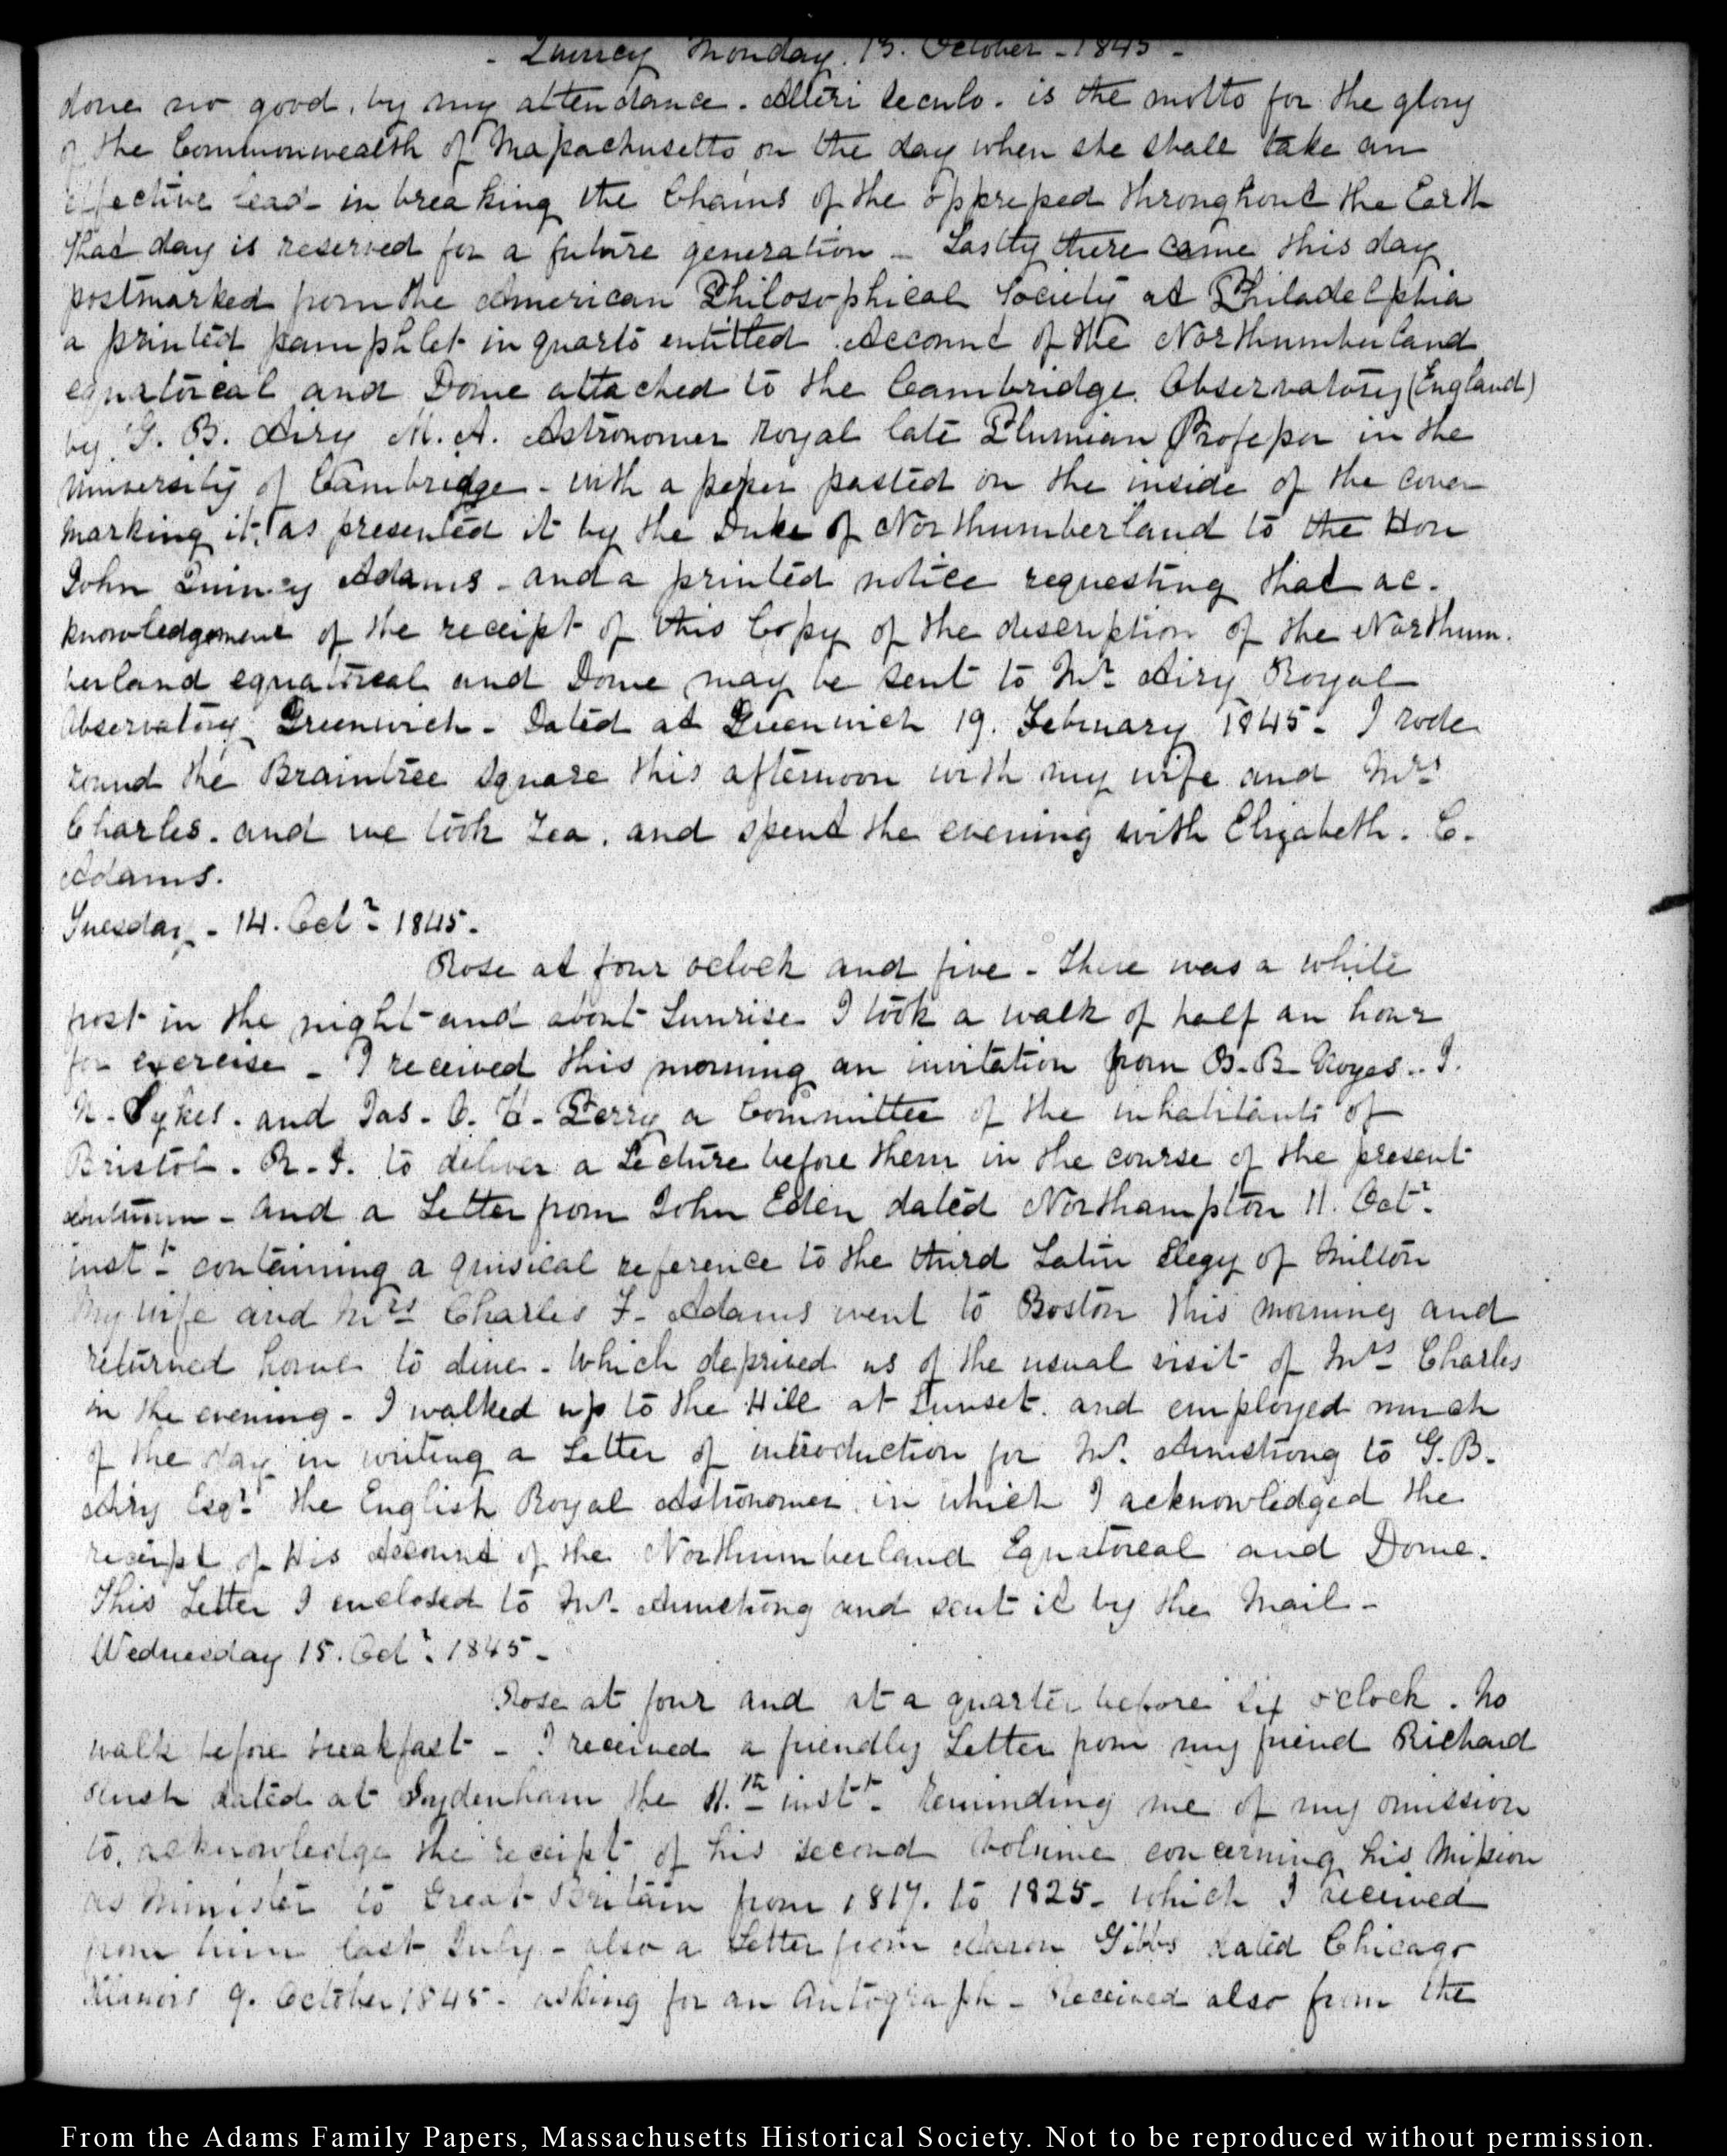 - Quincy Monday. 13. October - 1845 -
done no good, by my attendance. Alteri seculo. is the motto for the glory
of the Commonwealth of Massachusetts on the day when she shall take an
effective lead - in breaking the Chains of the oppressed throughout the Earth
That day is reserved for a future generation - Lastly there came this day
postmarked from the American Philosophical Society at Philadelphia
a printed pamphlet in quarto entitled Account of the Northumberland
equatoreal and Dome attached to the Cambridge Observatory (England)
by G. B. Airy M. A. Astronomer Royal late Plumian Professor in the
University of Cambridge - with a paper pasted on the inside of the cover
marking it, as presented it by the Duke of Northumberland to the Hon
John Quincy Adams - and a printed notice requesting that ac-
knowledgement of the receipt of this Copy of the description of the Northum-
berland equatoreal and Dome may be sent to Mr. Airy Royal
Observatory Greenwich - Dated at Greenwich 19. February 1845 - I rode
round the Braintree Square this afternoon with my wife and Mrs.
Charles. and we took Tea. and spent the evening with Elizabeth. C.
Adams.
Tuesday - 14. Octr. 1845.
Rose at four oclock and five - There was a white
frost in the night - and about Sunrise I took a walk of half an hour
for exercise - I received this morning an invitation from B. B. Noyes - I.
N. Sykes. and Jas. D. W. Perry a Committee of the inhabitants of
Bristol. R. I. to deliver a Lecture before them in the course of the present
autumn - and a Letter from John Eden dated Northampton 11. Octr.
instt. containing a quisical reference to the third Latin Elegy of Milton
My wife and Mrs. Charles F. Adams went to Boston this morning and
returned home to dine - Which deprived us of the usual visit of Mrs. Charles
in the evening - I walked up to the Hill at Sunset. and employed much
of the day in writing a Letter of introduction for Mr. Armstrong to G. B.
Airy Esqr. the English Royal Astronomer in which I acknowledged the
receipt of His Account of the Northumberland Equatoreal and Dome.
This Letter I enclosed to Mr. Armstrong and sent it by the Mail -
Wednesday 15. Octr. 1845 -
Rose at four and at a quarter before six o'clock. No
walk before breakfast - I received a friendly Letter from my friend Richard
Rush dated at Sydenham the 11.th instt. Reminding me of my omission
to acknowledge the receipt of his second Volume concerning his Mission
as Minister to Great Britain from 1817. to 1825 - which I received
from him last July - also a Letter from Aaron Gibbs dated Chicago
Illinois 9. October 1845 - asking for an Autograph - Received also from the
From the Adams Family Papers, Massachusetts Historical Society. Not to be reproduced without permission.